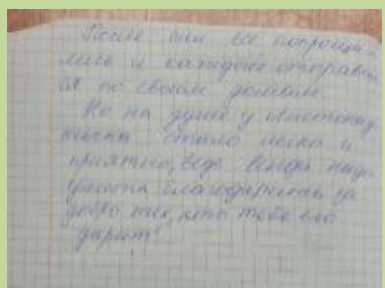 После они все попроща
лись и каждые отправи
ся по своим домам.
Но на душе у
кички стало легко и
приятно, ведь всегда надо
благодарность за
добро тех, кто тебе его
дарит!